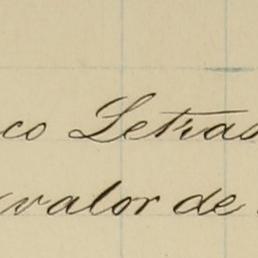 co Letras
valor de